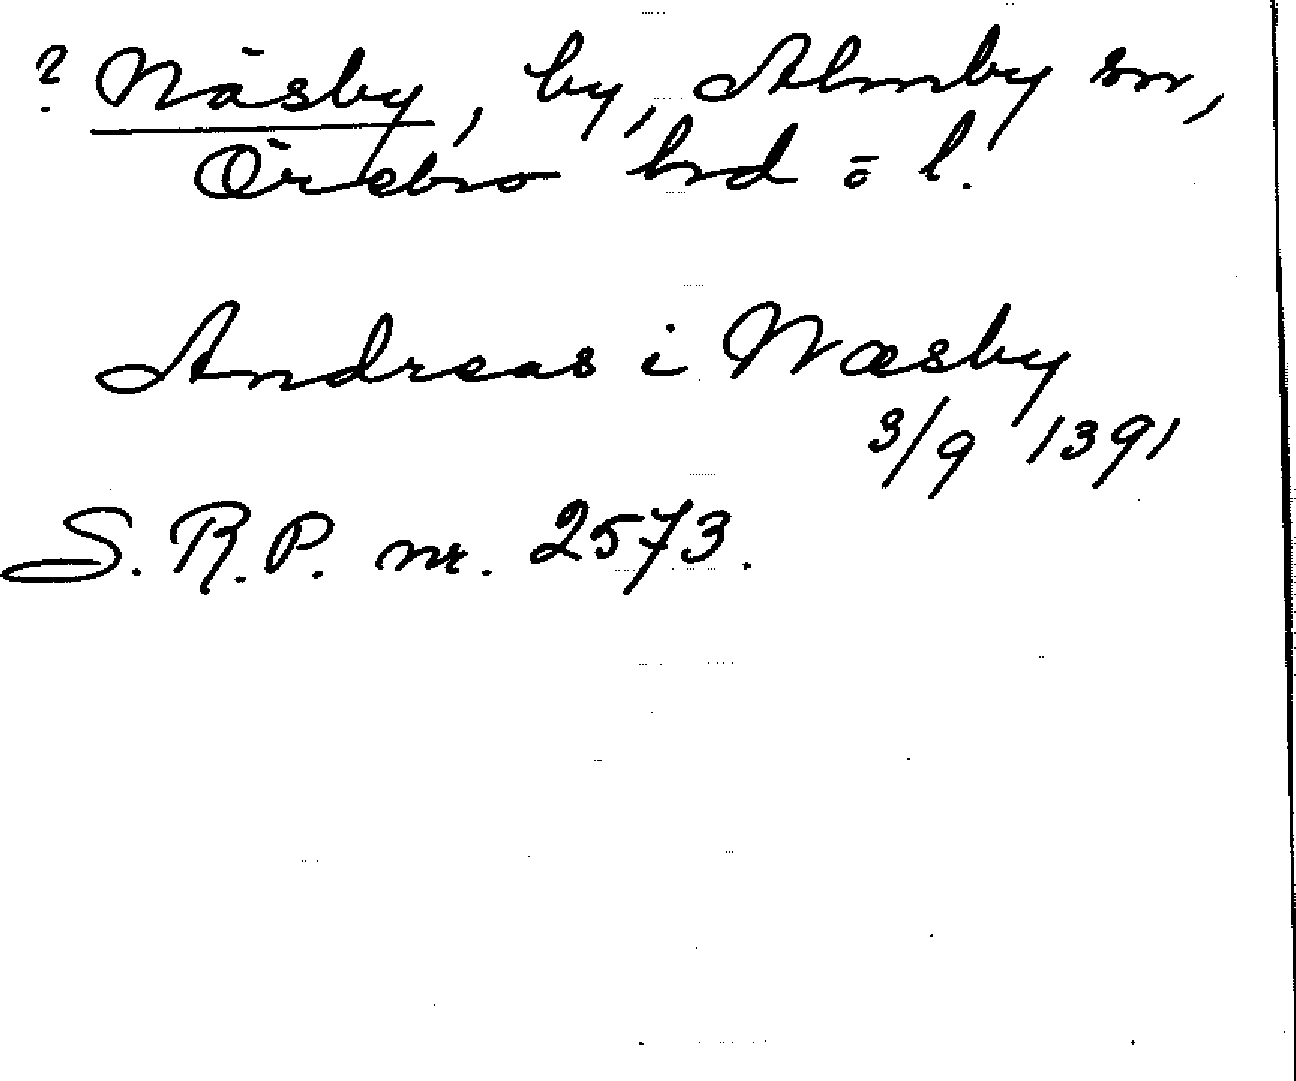 ? Näsby, by, Almby sn,
Örebro hrd ō l.
Andreas i Næsby
3/9 1391
S. R. P. nr. 2573.